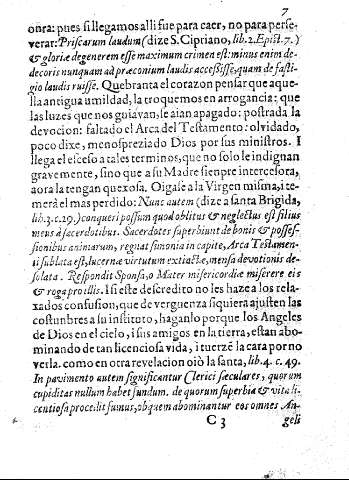 7
onra: pues si llegamos alli fue para caer, no para perse-
verar: Priscarum laudum (dize S. Cipriano, lib. 2. Epist. 7.)
& gloriæ degenerem esse maximum crimen est: minus enim de-
decoris nunquam ad præconium laudis accessisse, quam de fasti-
gio laudis ruisse. Quebranta el corazon pensar que aque-
lla antigua umildad, la troquemos en arrogancia: que
las luzes que nos guiavan, se aian apagado: postrada la
devocion: faltado el Arca del Testamento: olvidado,
poco dixe, menospreziado Dios por sus ministros. I
llega el esceso a tales terminos, que no solo le indignan
gravemente, sino que a su Madre sienpre intercesora,
aora la tengan quexosa. Oigase a la Virgen misma, i te-
merà el mas perdido: Nunc autem (dize a santa Brigida,
lib. 3. c. 29.) conqueri possum quod oblitus & neglectus est filius
meus à sacerdotibus. Sacerdotes superbiunt de bonis & posses-
sionibus animarum, regnat simonia in capite, Arca Testamen-
ti sublata est, lucernæ virtutum extinctæ, mensa devotionis de-
solata. Respondit Sponsa, o Mater misericordiæ miserere eis
& roga pro illis. I si este descredito no les haze a los rela-
xados confusion, que de verguenza siquiera ajusten las
costunbres a su instituto, haganlo porque los Angeles
de Dios en el cielo, i sus amigos en la tierra, estan abo-
minando de tan licenciosa vida, i tuerzē la cara por no
verla. como en otra revelacion oiò la santa, lib. 4. c. 49.
In pavimento autem significantur Clerici sæculares, quorum
cupiditas nullum habet fundum. de quorum superbia & vita li-
centiosa procedit fumus, ob quem abominantur eos omnes An-
C 3 geli